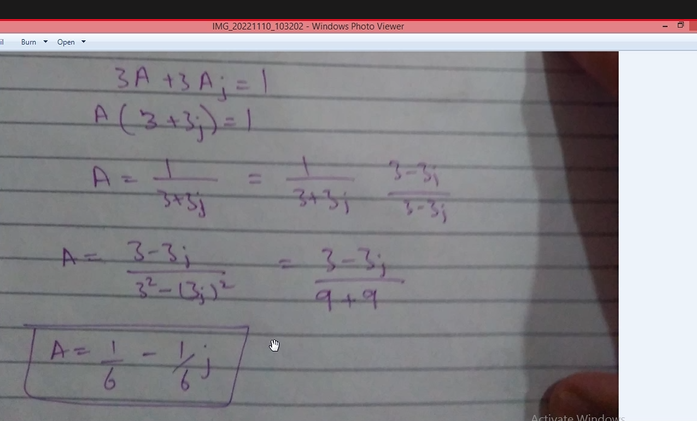 IMG_20221110_103202 - Windows Photo Viewer
il Burn Open
3A + 3Aj = 1
A (3 + 3j) = 1
A = 1/(3+3j) = 1/(3+3j) (3-3j)/(3-3j)
A = (3-3j)/(3²-(3j)²) = (3-3j)/(9+9)
A = 1/6 - 1/6 j
Activate Windows